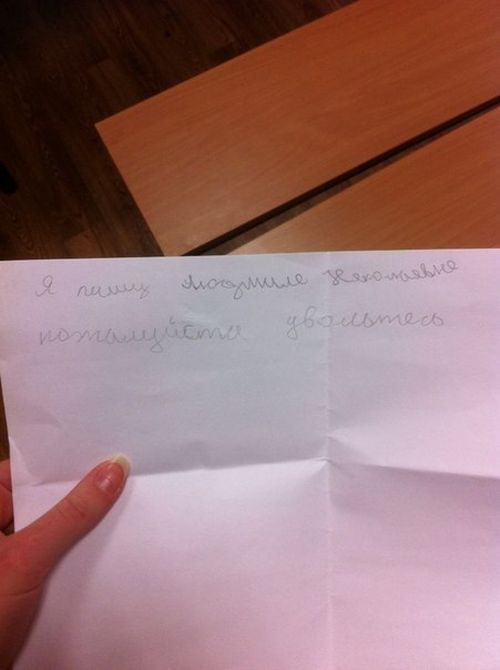 Я пишу Людмиле Николаевне
пожалуйста увольтесь